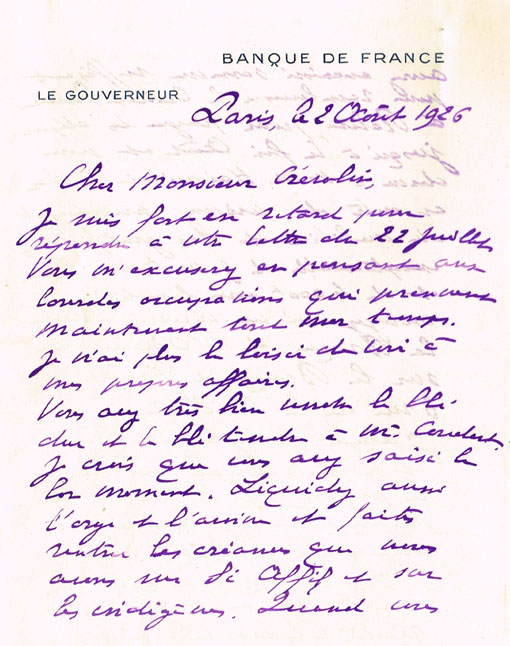 BANQUE DE FRANCE
LE GOUVERNEUR
Paris, le 2 Août 1926
Cher Monsieur
Je suis fort en retard pour
répondre à votre lettre du 22 juillet
Vous m'excuserez en pensant aux
lourdes occupations qui prennent
maintenant tout mon temps.
Je n'ai plus le loisir de                à
mes propres affaires.
Vous avez très bien vendu le blé
dur et le blé tendre à Mr.
Je crois que vous avez saisi le
bon moment. Liquidez aussi
l'orge et l'avoine et faites
rentrer les créances que nous
avons sur Si Affif et sur
les indigènes. Quand vous